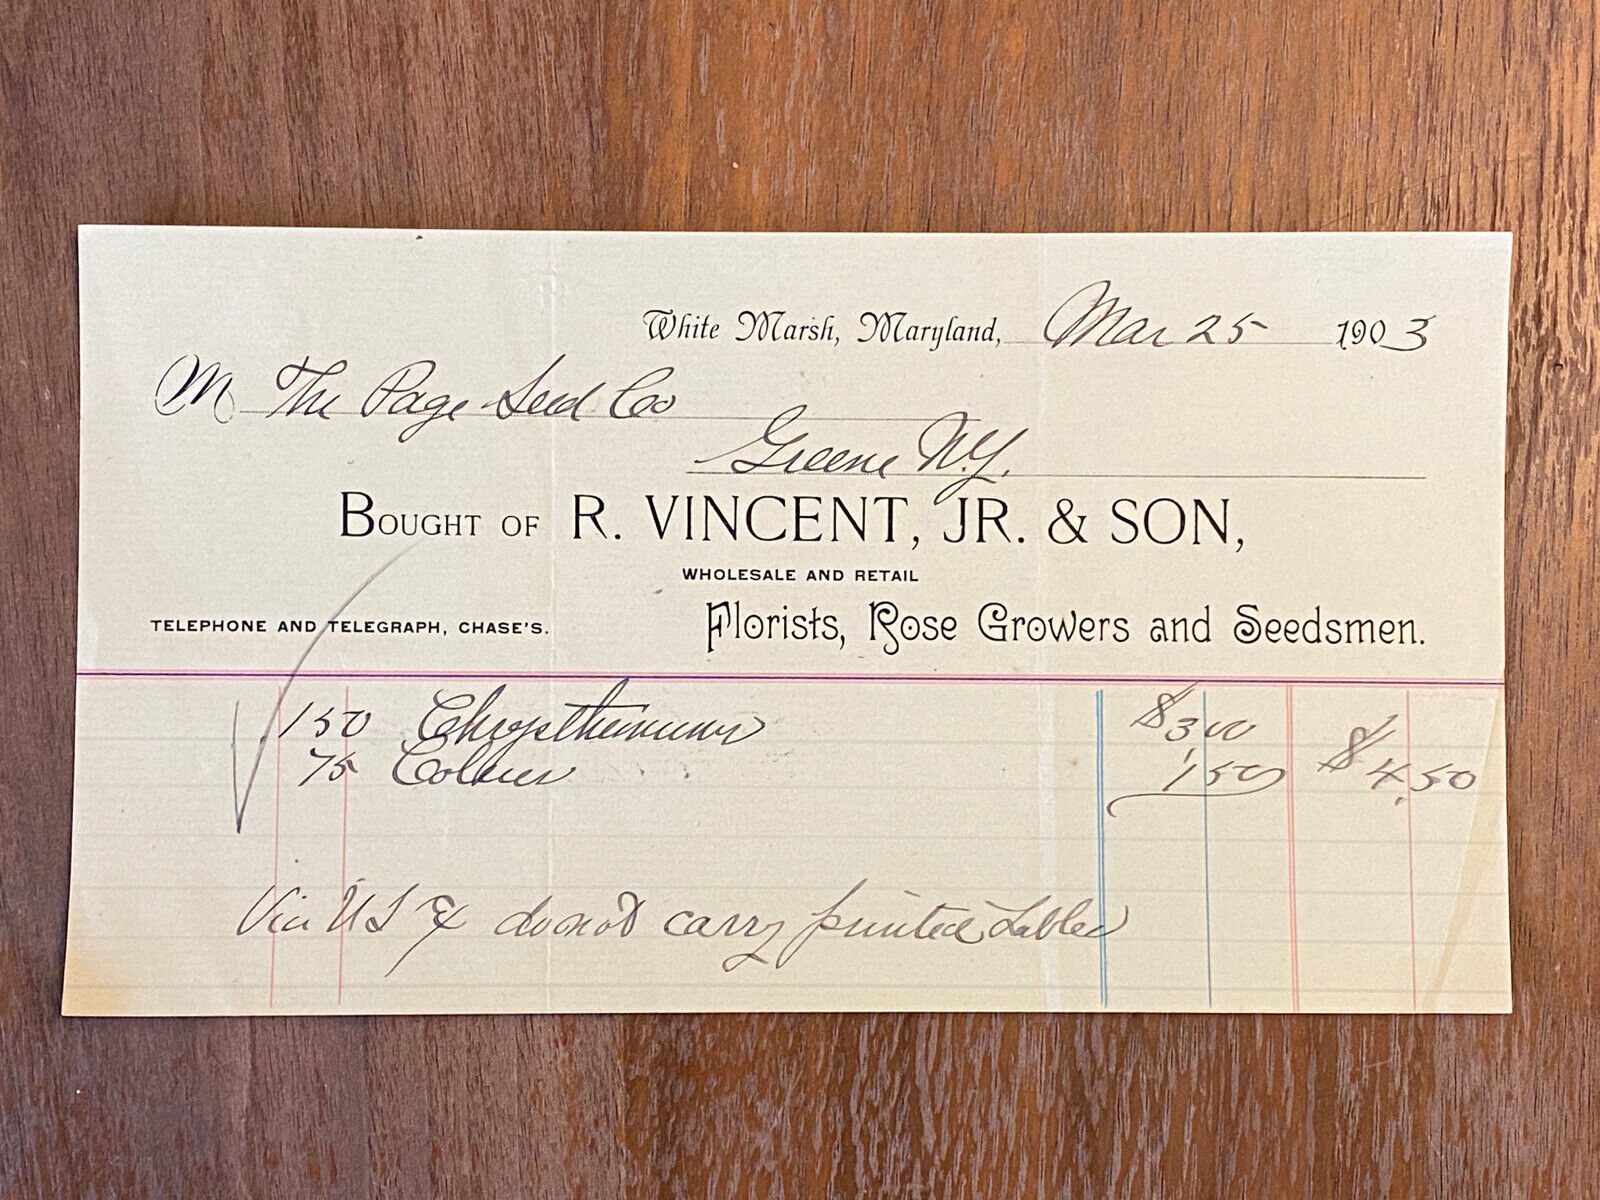 White Marsh, Maryland, Mar 25 1903
M The Page Seed Co
Greene N.Y.
BOUGHT OF R. VINCENT, JR. & SON,
WHOLESALE AND RETAIL
TELEPHONE AND TELEGRAPH, CHASE'S. Florists, Rose Growers and Seedsmen.
150 Chrysthemums $3 00
75 Coleus 1 50 $4.50
Via US Ex do not carry printed Lables